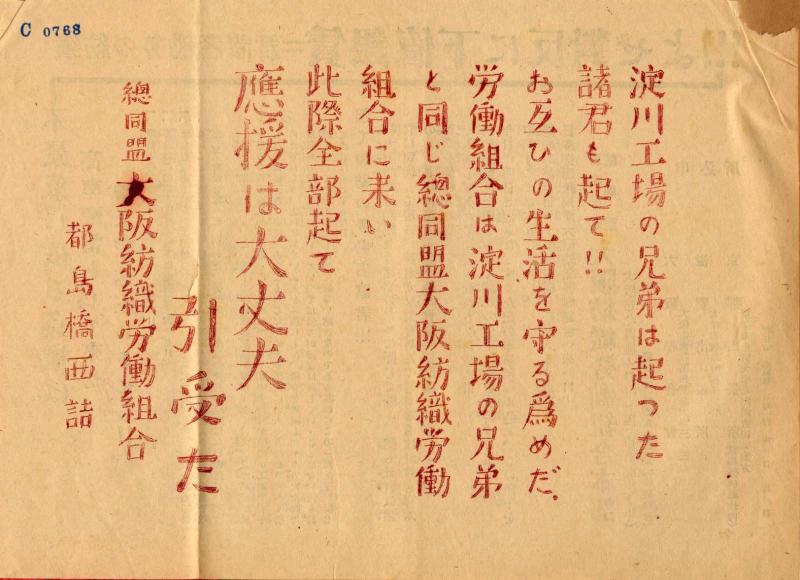 C 0768
淀川工場の兄弟は起つた
諸君も起て!!
お互ひの生活を守る爲めだ.
労働組合は淀川工場の兄弟
と同じ總同盟大阪紡織労働
組合に来い
此際全部起て
應援は大丈夫
引受た
總同盟大阪紡織労働組合
都島橋西詰